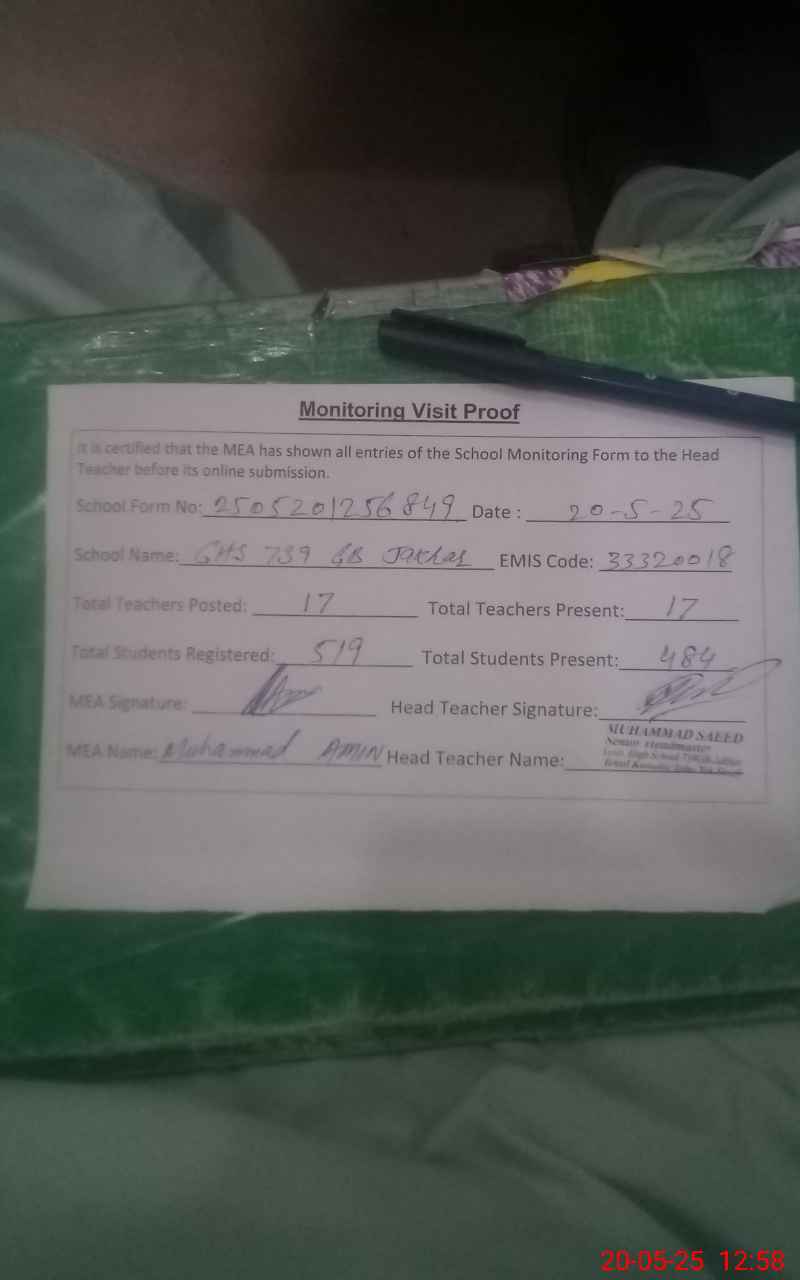 Monitoring Visit Proof
It is certified that the MEA has shown all entries of the School Monitoring Form to the Head
Teacher before its online submission.
School Form No: 2505201256849 Date : 20-5-25
School Name: GHS 739 GB Jakhar EMIS Code: 33320018
Total Teachers Posted: 17 Total Teachers Present: 17
Total Students Registered: 519 Total Students Present: 484
MEA Signature: Head Teacher Signature:
MUHAMMAD SAEED
Senior Headmaster
High School
MEA Name: Muhammad AMIN Head Teacher Name:
20-05-25 12:58